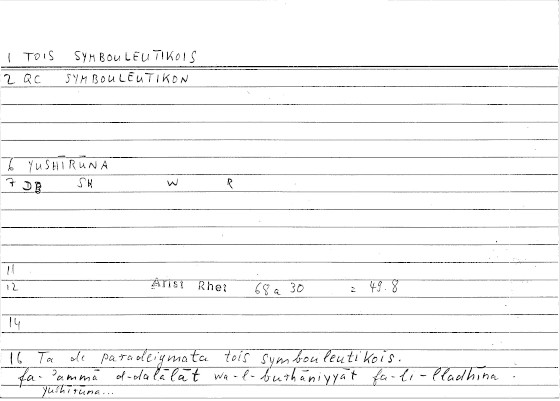 1 TOIS SYMBOULEUTIKOIS
2 QC SYMBOULEUTIKON
6 YUSHĪRŪNA
7 DB SH W R
11
12 Arist Rhet 68a 30 = 49.8
14
16 Ta de paradeigmata tois symbouleutikois.
fa-'ammā d-dalālāt wa-l-burhāniyyāt fa-li-lladhīna
yushīrūna...